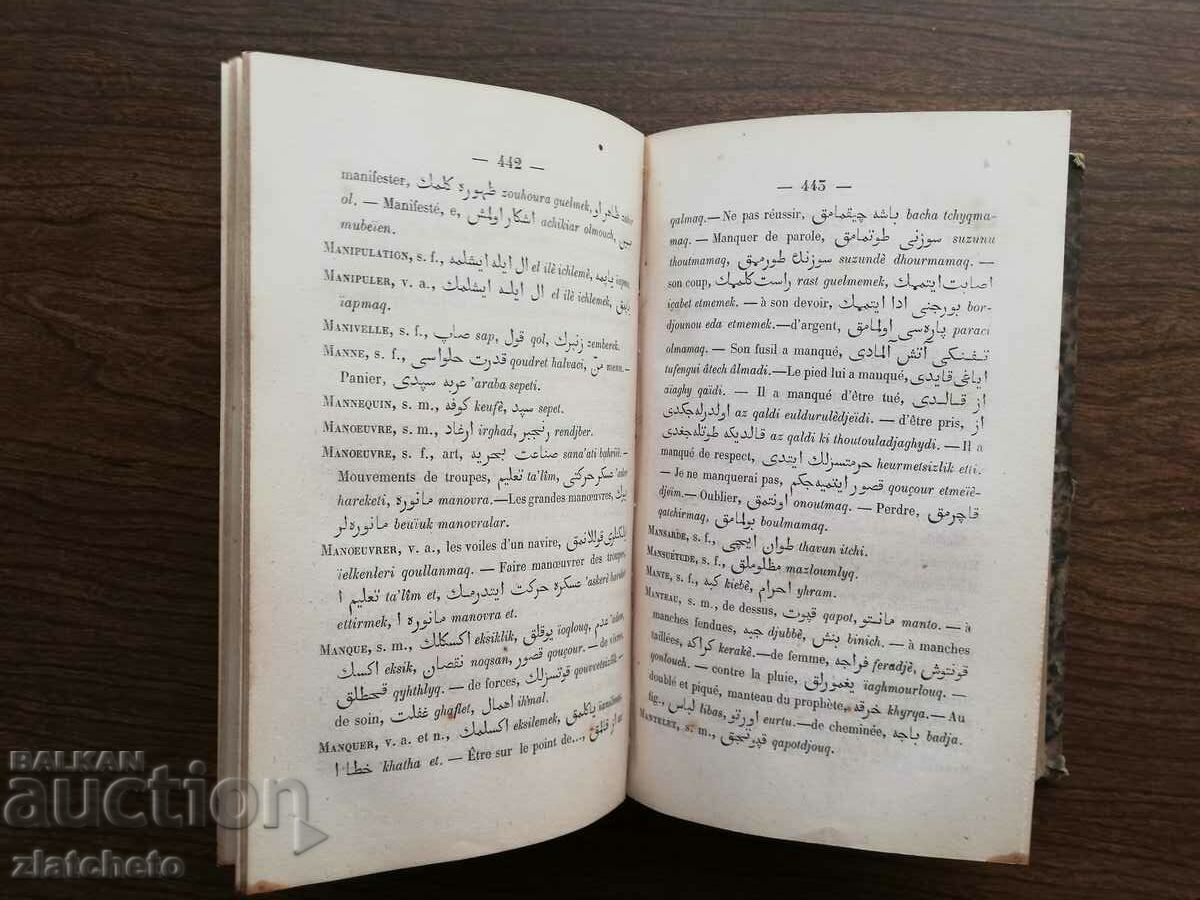 — 442 —
manifester, ظهوره كلمك zouhoura guelmek, ظاهر او zahir
ol. — Manifesté, e, اشكار اولمش achikiar olmouch,
mubeïen.
MANIPULATION, s. f., ال ايله ايشلمه el ilè ichlemè, ياپمه ïapma
MANIPULER, v. a., ال ايله ايشلمك el ilè ichlemek,
ïapmaq.
MANIVELLE, s. f., صاپ sap, قول qol, زنبرك zemberek.
MANNE, s. f., قدرت حلواسى qoudret halvaci, منّ menn. —
Panier, عربه سپدى 'araba sepeti.
MANNEQUIN, s. m., كوفه keufè, سپد sepet.
MANOEUVRE, s. m., ارغاد irghad, رنجبر rendjber.
MANOEUVRE, s. f., art, صناعت بحريه sana'ati bahriïè. —
Mouvements de troupes, تعليم ta'lîm, عسكر حركتى 'asker
hareketi, مانوره manovra. — Les grandes manœuvres,
مانوره لر beuïuk manovralar.
MANOEUVRER, v. a., les voiles d'un navire, يلكنلرى قوللانمق
ïelkenleri qoullanmaq. — Faire manœuvrer des troupes,
تعليم ا ta'lîm et, عسكره حركت ايتدرمك 'askerè hareket
ettirmek, مانوره ا manovra et.
MANQUE, s. m., اكسكلك eksiklik, يوقلق ïoqlouq, عدم 'adem,
اكسك eksik, نقصان noqsan, قصور qouçour. — de vivres,
قحطلق qyhthlyq. — de forces, قوتسزلك qouvvetsizlik. —
de soin, غفلت ghaflet, اهمال ihmal.
MANQUER, v. a. et n., اكسلمك eksilemek, ياكلمق
خطا ا khatha et. — Être sur le point de..., از قلمق az
— 443 —
qalmaq. — Ne pas réussir, باشه چيقمامق bacha tchyqma-
maq. — Manquer de parole, سوزنى طوتمامق suzunu
thoutmamaq, سوزنده طورمامق suzundè dhourmamaq. —
son coup, راست كلمهمك rast guelmemek, اصابت ايتمهمك
içabet etmemek. — à son devoir, بورجنى ادا ايتمهمك bor-
djounou eda etmemek. — d'argent, پاره سى اولمامق paraci
olmamaq. — Son fusil a manqué, تفنكى آتش آلمادى
tufengui âtech âlmadi. — Le pied lui a manqué, اياغى قايدى
aïaghy qaïdi. — Il a manqué d'être tué, از قالدى
اولدرله جكدى az qaldi euldurulèdjeïdi. — d'être pris, از
قالديكه طوتله جغدى az qaldi ki thoutouladjaghydi. — Il a
manqué de respect, حرمتسزلك ايتدى heurmetsizlik etti.
— Je ne manquerai pas, قصور ايتميه جكم qouçour etmeïè-
djeim. — Oublier, اونتمق onoutmaq. — Perdre, قاچرمق
qatchirmaq, بولمامق boulmamaq.
MANSARDE, s. f., طوان ايچى thavan itchi.
MANSUÉTUDE, s. f., مظلوملق mazloumlyq.
MANTE, s. f., كبه kiebè, احرام yhram.
MANTEAU, s. m., de dessus, قپوت qapot, مانتو manto. — à
manches fendues, جبه djubbè, بنش binich. — à manches
taillées, كراكه kerakè. — de femme, فراجه feradjè, قونتوش
qonlouch. — contre la pluie, يغمورلق ïaghmourlouq. —
doublé et piqué, manteau du prophète, خرقه khyrqa. — Au
fig., لباس libas, اورتو eurtu. — de cheminée, باجه badja.
MANTELET, s. m., قپوتجق qapotdjouq.
BALKAN
auction
zlatcheto